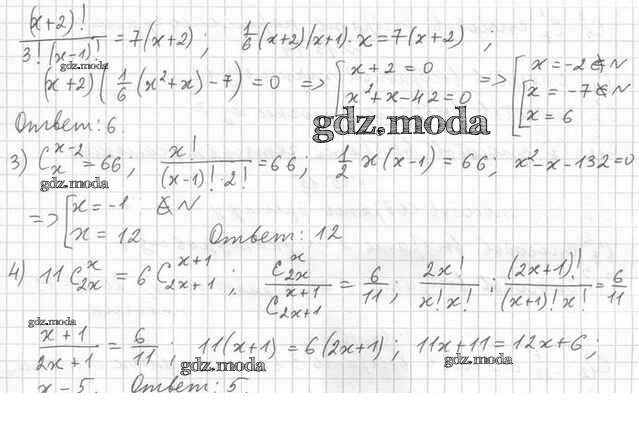 (x+2)! / 3!(x-1)! = 7(x+2) ; 1/6 (x+2)(x+1)·x = 7(x+2) ;
gdz.moda
(x+2)(1/6(x²+x)-7) = 0 => [ x+2=0 ; x²+x-42=0 => [ x=-2 ∉ N ; [ x=-7 ∉ N ; x=6
Ответ: 6.
gdz.moda
3) C_x^{x-2} = 66 ; x! / (x-1)!·2! = 66 ; 1/2 x(x-1) = 66 ; x²-x-132=0
gdz.moda
=> [ x=-1 ∉ N ; x=12 Ответ: 12
4) 11C_{2x}^{x} = 6C_{2x+1}^{x+1} ; C_{2x}^{x} / C_{2x+1}^{x+1} = 6/11 ; 2x! / x!x! : (2x+1)! / (x+1)!x! = 6/11
gdz.moda
x+1 / 2x+1 = 6/11 ; 11(x+1) = 6(2x+1) ; 11x+11 = 12x+6 ;
gdz.moda
gdz.moda
x-5. Ответ: 5.